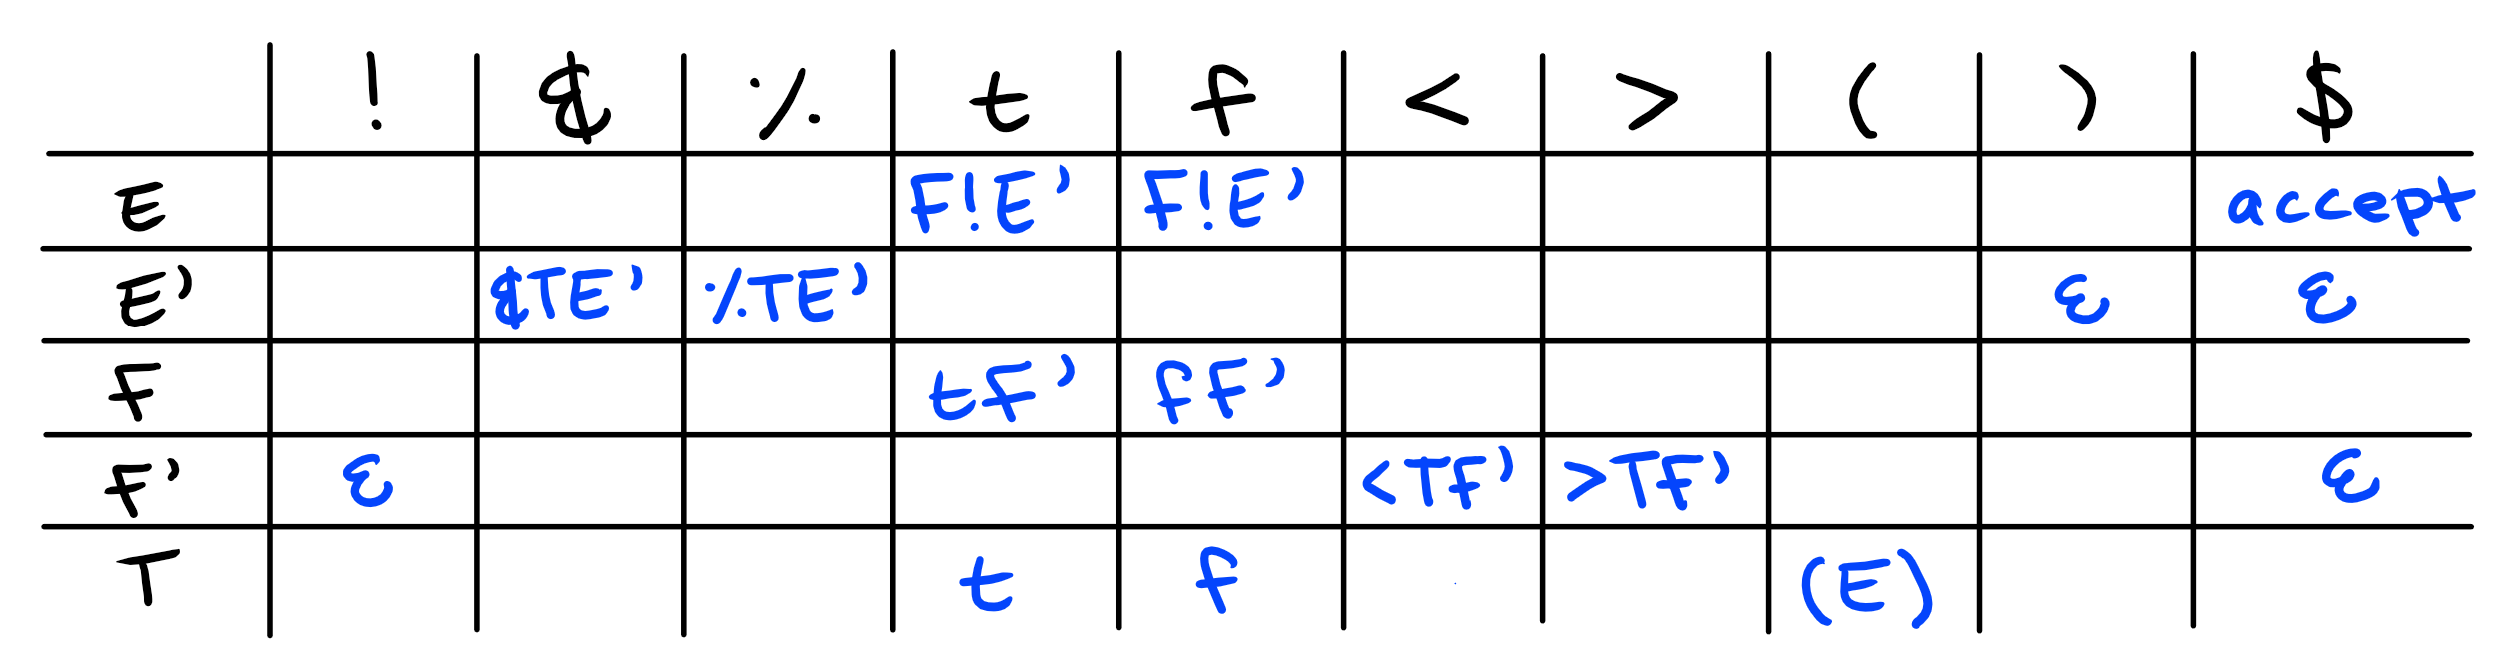 ! & % t f < > ( ) $
E F!E' F!E' accept
E' &TE' %TE' ε ε
F tFF' fFF'
F' ε <TF' >TF' ε
T t f (E)